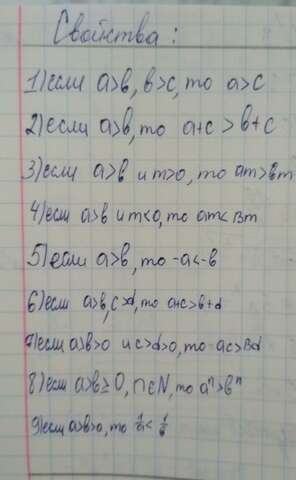 Свойства:
1) если a>b, b>c, то a>c
2) если a>b, то a+c > b+c
3) если a>b и m>0, то am>bm
4) если a>b и m<0, то am<bm
5) если a>b, то -a<-b
6) если a>b, c>d, то a+c>b+d
7) если a>b>0 и c>d>0, то ac>bd
8) если a>b≥0, n∈N, то aⁿ>bⁿ
9) если a>b>0, то 1/a < 1/b